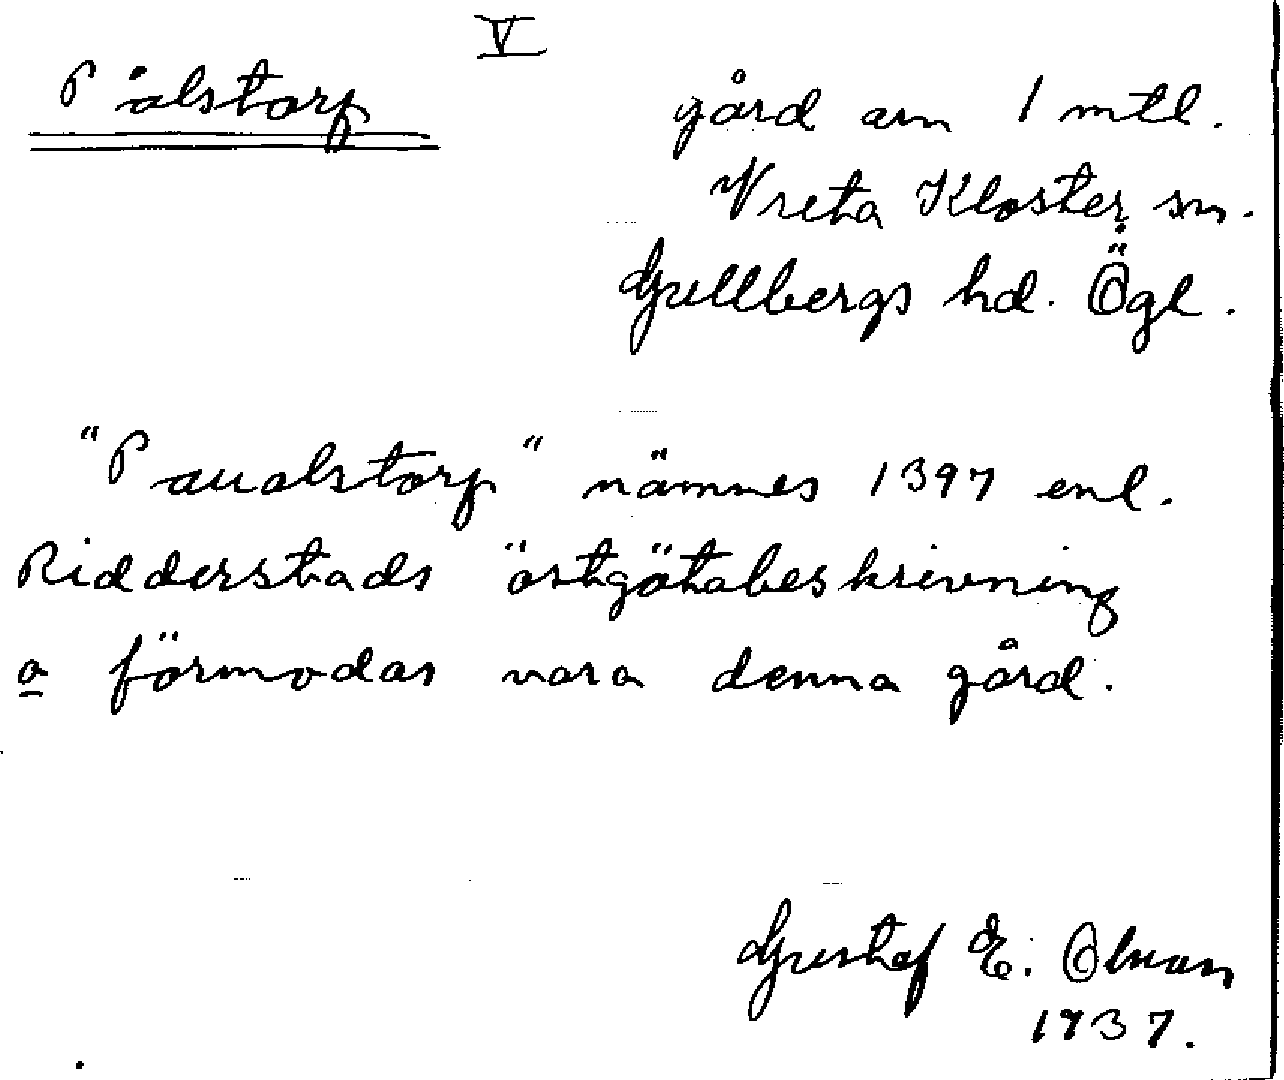 V
Pålstorp
gård om 1 mtl.
Vreta Kloster sn.
Gullbergs hd. Ögl.
"Paualstorp" nämnes 1397 enl.
Ridderstads östgötabeskrivning
o förmodas vara denna gård.
Gustaf E.
1937.